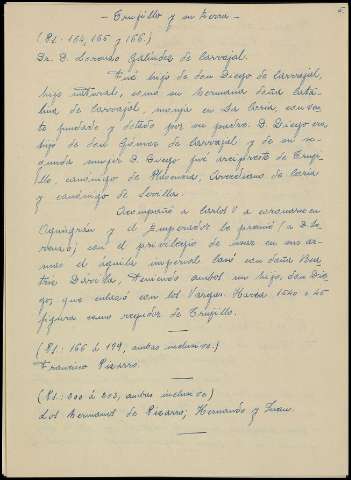 5.
- Trujillo y su tierra -
(Ps: 164, 165 y 166.)
Dr. D. Lorenzo Galíndez de Carvajal.
Fué hijo de don Diego de Carvajal,
hijo natural, como su hermana doña Cata-
lina de Carvajal, monja en La Coria, conven-
to fundado y dotado por su padre. D. Diego era
hijo de don Gómez de Carvajal y de su se-
gunda mujer. D. Diego fué arcipreste de Truji-
llo, canónigo de Plasencia, Arcediano de Coria
y canónigo de Sevilla.
Acompañó a Carlos V a coronarse en
Aquisgrán y el Emperador le premió (a D. Lo-
renzo) con el privilegio de usar en sus ar-
mas el águila imperial. Casó con doña Bea-
triz Dávila, teniendo ambos un hijo, don Die-
go, que enlazó con los Vargas. Hacia 1540 a 45
figura como regidor de Trujillo.
(Ps: 166 á 199, ambas inclusive.)
Francisco Pizarro.
(Ps: 200 á 203, ambas inclusive)
Los hermanos de Pizarro; Hernando y Juan.